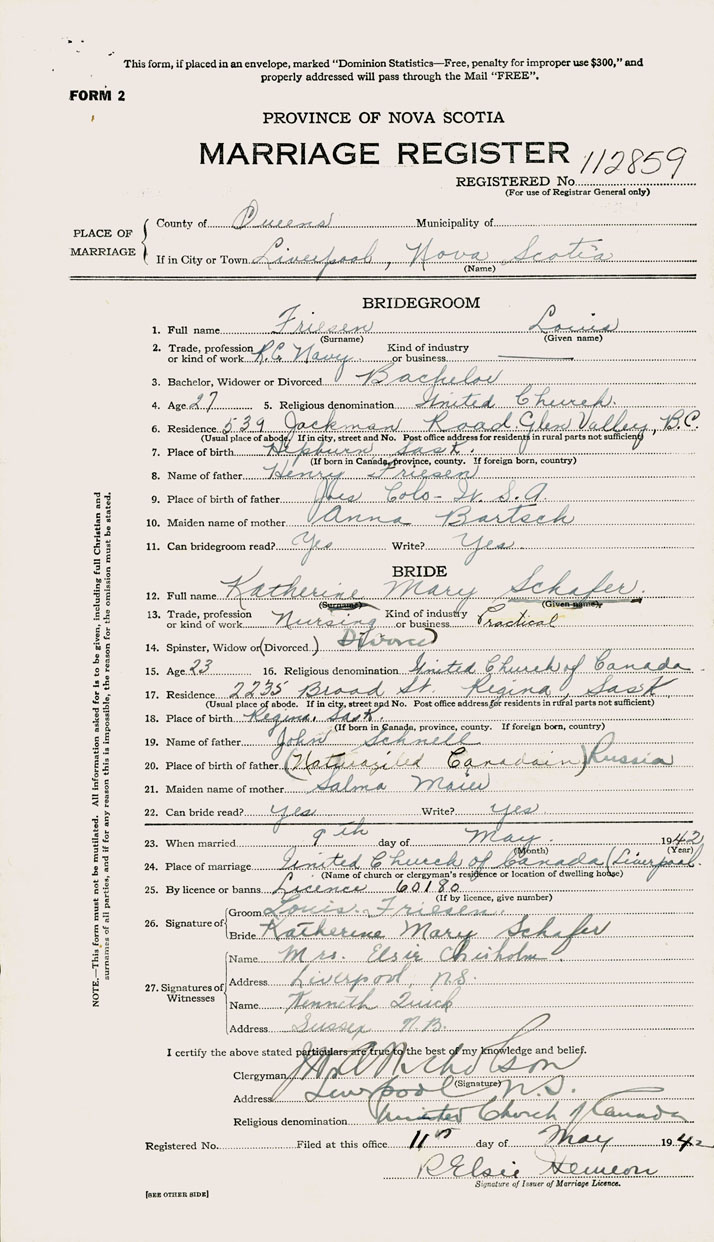 This form, if placed in an envelope, marked "Dominion Statistics—Free, penalty for improper use $300," and
properly addressed will pass through the Mail "FREE".
FORM 2
PROVINCE OF NOVA SCOTIA
MARRIAGE REGISTER
REGISTERED No. 112859
(For use of Registrar General only)
PLACE OF MARRIAGE
County of Queens Municipality of
If in City or Town Liverpool, Nova Scotia
(Name)
BRIDEGROOM
1. Full name Friesen Louis
(Surname) (Given name)
2. Trade, profession or kind of work R.C. Navy Kind of industry or business
3. Bachelor, Widower or Divorced Bachelor
4. Age 27 5. Religious denomination United Church
6. Residence 539 Jackman Road Glen Valley, B.C.
(Usual place of abode. If in city, street and No. Post office address for residents in rural parts not sufficient)
7. Place of birth Hepburn Sask.
(If born in Canada, province, county. If foreign born, country)
8. Name of father Henry Friesen
9. Place of birth of father Joes Colo- U.S.A.
10. Maiden name of mother Anna Bartsch
11. Can bridegroom read? Yes Write? Yes
BRIDE
12. Full name Katherine Mary Schafer
(Surname) (Given name)
13. Trade, profession or kind of work Nursing Kind of industry or business Practical
14. Spinster, Widow or (Divorced) Divorced
15. Age 23 16. Religious denomination United Church of Canada
17. Residence 2235 Broad St. Regina, Sask
(Usual place of abode. If in city, street and No. Post office address for residents in rural parts not sufficient)
18. Place of birth Regina, Sask.
(If born in Canada, province, county. If foreign born, country)
19. Name of father John Schnell
20. Place of birth of father (Canadain) Russia
21. Maiden name of mother Salma Maier
22. Can bride read? Yes Write? Yes
23. When married 9th day of May 1942
(Month) (Year)
24. Place of marriage United Church of Canada (Liverpool.
(Name of church or clergyman's residence or location of dwelling house)
25. By licence or banns Licence 60180
(If by licence, give number)
26. Signature of
Groom Louis Friesen
Bride Katherine Mary Schafer
27. Signatures of Witnesses
Name Mrs. Elsie Chisholm
Address Liverpool, N.S.
Name Kenneth Quick
Address Sussex N.B.
I certify the above stated particulars are true to the best of my knowledge and belief.
Clergyman Nicholson
(Signature)
Address Liverpool N.S.
Religious denomination United Church of Canada
Registered No. Filed at this office 11th day of May 1942
R Elsie Hemeon
Signature of Issuer of Marriage Licence.
[SEE OTHER SIDE]
NOTE.—This form must not be mutilated. All information asked for is to be given, including full Christian and
surnames of all parties, and if for any reason this is impossible, the reason for the omission must be stated.